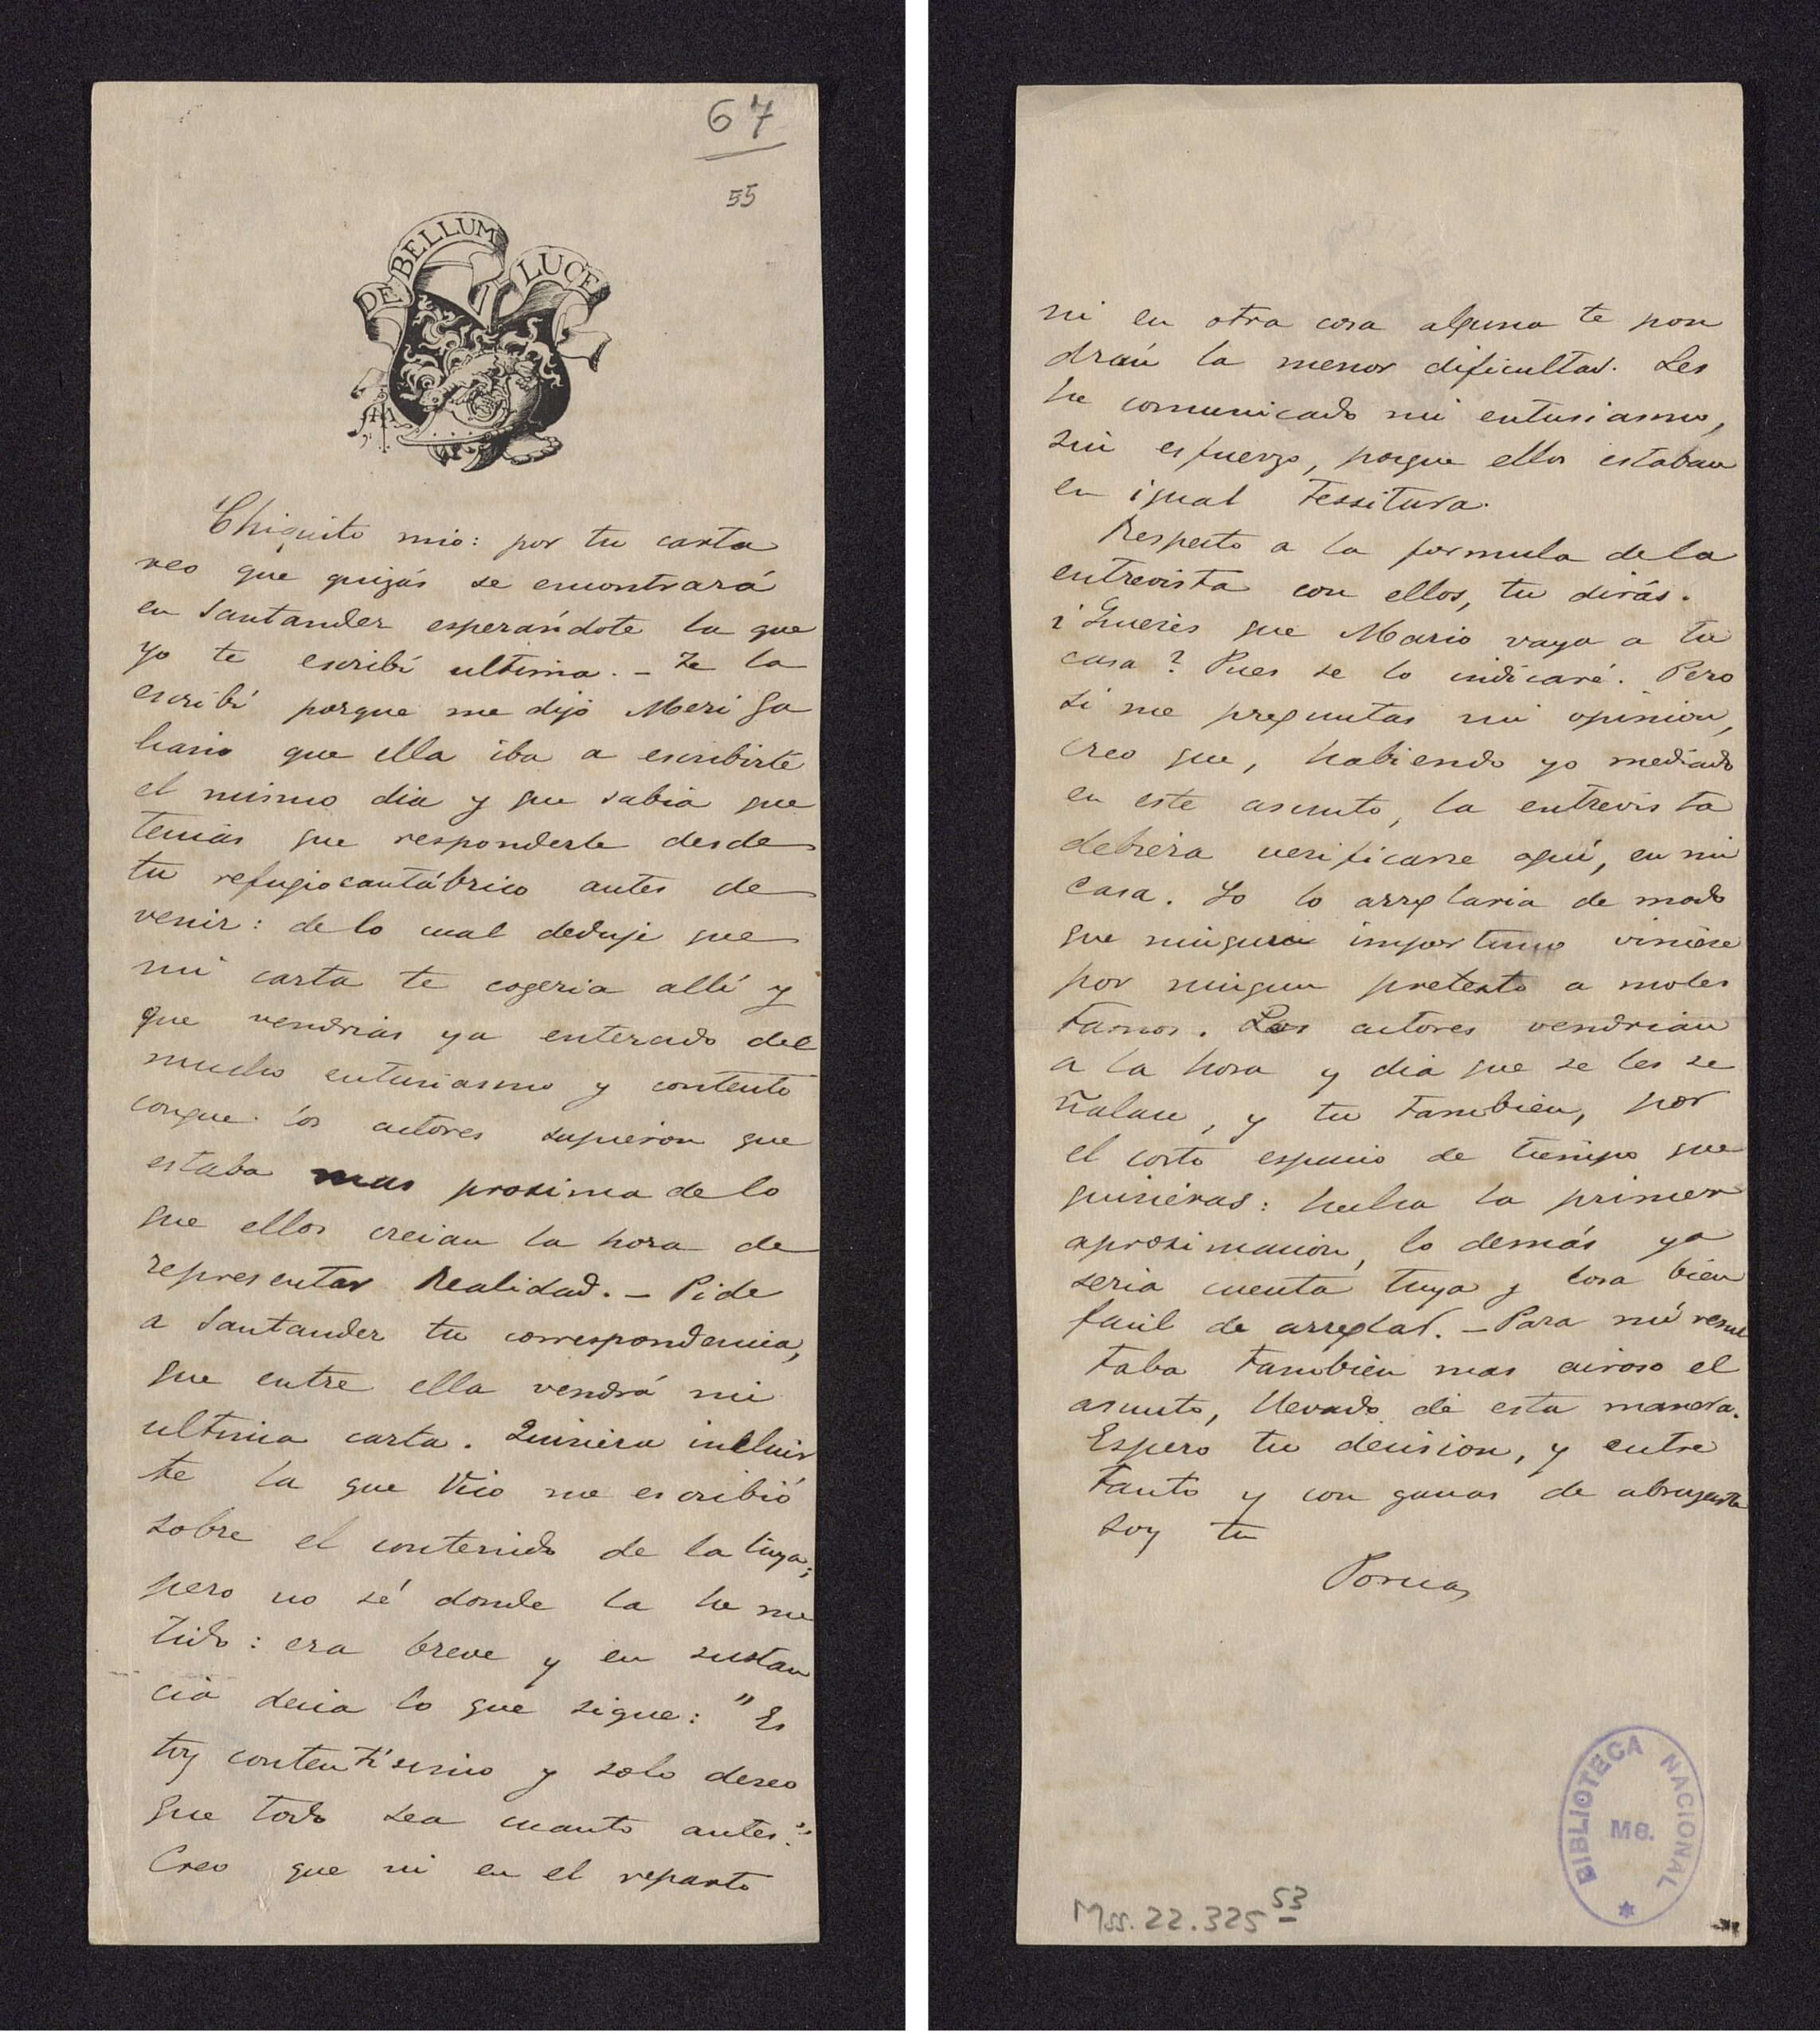 67
55
DE BELLUM LUCE
Chiquito mio: por tu carta
veo que quizás se encontrará
en Santander esperándote la que
yo te escribí ultima. – Te la
escribí porque me dijo Meri Ga
liano que ella iba a escribirte
el mismo dia y que sabia que
tenias que responderle desde
tu refugio cantábrico antes de
venir: de lo cual deduje que
mi carta te cogeria allí y
que vendrias ya enterado del
mucho entusiasmo y contento
conque los actores supieron que
estaba mas proxima de lo
que ellos creian la hora de
representar Realidad. – Pide
a Santander tu correspondencia,
que entre ella vendrá mi
ultima carta. Quisiera incluir
te la que Vico me escribió
sobre el contenido de la tuya;
pero no sé donde la he me
tido: era breve y en sustan
cia decia lo que sigue: "Es
toy contentísimo y solo deseo
que todo sea cuanto antes."
Creo que ni en el reparto
ni en otra cosa alguna te pon
drán la menor dificultad. Les
he comunicado mi entusiasmo,
sin esfuerzo, porque ellos estaban
en igual tessitura.
Respecto a la formula de la
entrevista con ellos, tu dirás.
¿Quieres que Mario vaya a tu
casa? Pues se lo indicaré. Pero
si me preguntas mi opinion,
creo que, habiendo yo mediado
en este asunto, la entrevista
debiera verificarse aquí, en mi
casa. Yo lo arreglaria de modo
que ningun importuno viniese
por ningun pretexto a moles
tarnos. Los actores vendrian
a la hora y dia que se les se
ñalase, y tu tambien, por
el corto espacio de tiempo que
quisieras: hecha la primer
aproximacion, lo demás ya
seria cuenta tuya y cosa bien
facil de arreglar. – Para mí resul
taba tambien mas airoso el
asunto, llevado de esta manera.
Espero tu decision, y entre
tanto y con ganas de abrazarte
soy tu
BIBLIOTECA NACIONAL
MS.
Mss. 22.325 53